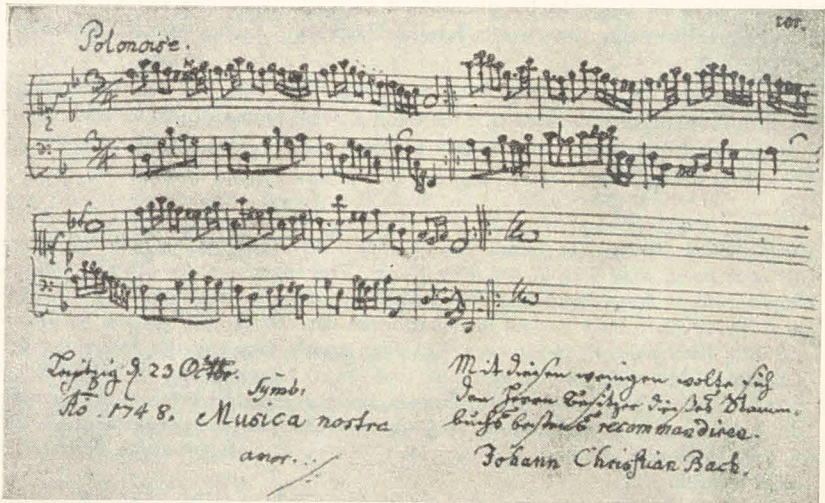 101.
Polonoise.
3/4
3/4
Leipzig d. 23 Octbr.
Aō. 1748.
Symb.
Musica nostra
amor.
Mit diesen wenigen wolte sich
dem Herrn Besitzer dieses Stamm-
buchs bestens recommandiren.
Johann Christian Bach.